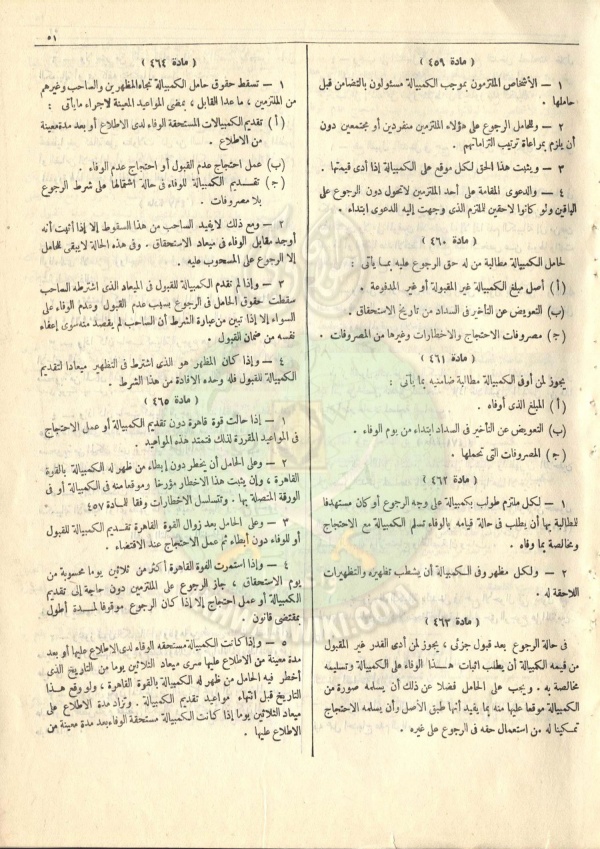 ٥١
( مادة ٤٥٩ )
١ – الأشخاص الملتزمون بموجب الكمبيالة مسئولون بالتضامن قبل
حاملها .
٢ – وللحامل الرجوع على هؤلاء الملتزمين منفردين أو مجتمعين دون
أن يلزم بمراعاة ترتيب التزاماتهم .
٣ – ويثبت هذا الحق لكل موقع على الكمبيالة إذا أدى قيمتها .
٤ – والدعوى المقامة على أحد الملتزمين لاتحول دون الرجوع على
الباقين ولو كانوا لاحقين للملتزم الذى وجهت إليه الدعوى ابتداء .
( مادة ٤٦٠ )
لحامل الكمبيالة مطالبة من له حق الرجوع عليه بما يأتى :
(أ) أصل مبلغ الكمبيالة غير المقبولة أو غير المدفوعة .
(ب) التعويض عن التأخير فى السداد من تاريخ الاستحقاق .
(ج) مصروفات الاحتجاج والاخطارات وغيرها من المصروفات .
( مادة ٤٦١ )
يجوز لمن أوفى الكمبيالة مطالبة ضامنيه بما يأتى :
(أ) المبلغ الذى أوفاه .
(ب) التعويض عن التأخير فى السداد ابتداء من يوم الوفاء .
(ج) المصروفات التى تحملها .
( مادة ٤٦٢ )
١ – لكل ملتزم طولب بكمبيالة على وجه الرجوع أو كان مستهدفا
للمطالبة بها أن يطلب فى حالة قيامه بالوفاء تسلم الكمبيالة مع الاحتجاج
ومخالصة بما وفاه .
٢ – ولكل مظهر وفى الكمبيالة أن يشطب تظهيره والتظهيرات
اللاحقة له .
( مادة ٤٦٣ )
فى حالة الرجوع بعد قبول جزئى ، يجوز لمن أدى القدر غير المقبول
من قيمه الكمبيالة أن يطلب اثبات هذا الوفاء على الكمبيالة وتسليمه
مخالصة به . ويجب على الحامل فضلا عن ذلك أن يسلمه صورة من
الكمبيالة موقعا عليها منه بما يفيد أنها طبق الأصل وأن يسلمه الاحتجاج
تمكينا له من استعمال حقه فى الرجوع على غيره .
( مادة ٤٦٤ )
١ – تسقط حقوق حامل الكمبيالة تجاه المظهرين والساحب وغيرهم
من الملتزمين ، ما عدا القابل ، بمضى المواعيد المعينة لاجراء ما يأتى :
(أ) تقديم الكمبيالات المستحقة الوفاء لدى الاطلاع أو بعد مدة معينة
من الاطلاع .
(ب) عمل احتجاج عدم القبول أو احتجاج عدم الوفاء .
(ج) تقديم الكمبيالة للوفاء فى حالة اشتمالها على شرط الرجوع
بلا مصروفات .
٢ – ومع ذلك لا يفيد الساحب من هذا السقوط إلا إذا أثبت أنه
أوجد مقابل الوفاء فى ميعاد الاستحقاق . وفى هذه الحالة لا يبقى للحامل
إلا الرجوع على المسحوب عليه .
٣ – وإذا لم تقدم الكمبيالة للقبول فى الميعاد الذى اشترطه الساحب
سقطت حقوق الحامل فى الرجوع بسبب عدم القبول وعدم الوفاء على
السواء إلا إذا تبين من عبارة الشرط أن الساحب لم يقصد منه سوى إعفاء
نفسه من ضمان القبول .
٤ – وإذا كان المظهر هو الذى اشترط فى التظهير ميعادا لتقديم
الكمبيالة للقبول فله وحده الافادة من هذا الشرط .
( مادة ٤٦٥ )
١ – إذا حالت قوة قاهرة دون تقديم الكمبيالة أو عمل الاحتجاج
فى المواعيد المقررة لذلك فتمتد هذه المواعيد .
٢ – وعلى الحامل أن يخطر دون إبطاء من ظهر له الكمبيالة بالقوة
القاهرة ، وأن يثبت هذا الاخطار مؤرخا وموقعا منه فى الكمبيالة أو فى
الورقة المتصلة بها . وتتسلسل الاخطارات وفقا للمادة ٤٥٧
٣ – وعلى الحامل بعد زوال القوة القاهرة تقديم الكمبيالة للقبول
أو للوفاء دون أبطاء ثم عمل الاحتجاج عند الاقتضاء .
٤ – وإذا استمرت القوة القاهرة أكثر من ثلاثين يوما محسوبة من
يوم الاستحقاق ، جاز الرجوع على الملتزمين دون حاجة إلى تقديم
الكمبيالة أو عمل احتجاج إلا إذا كان الرجوع موقوفا لمدة أطول
بمقتضى قانون .
٥ – وإذا كانت الكمبيالة مستحقه الوفاء لدى الاطلاع عليها أو بعد
مدة معينة من الاطلاع عليها سرى ميعاد الثلاثين يوما من التاريخ الذى
أخطر فيه الحامل من ظهر له الكمبيالة بالقوة القاهرة ، ولو وقع هذا
التاريخ قبل انتهاء مواعيد تقديم الكمبيالة . وتزاد مدة الاطلاع على
ميعاد الثلاثين يوما إذا كانت الكمبيالة مستحقة الوفاء بعد مدة معينة من
الاطلاع عليها .